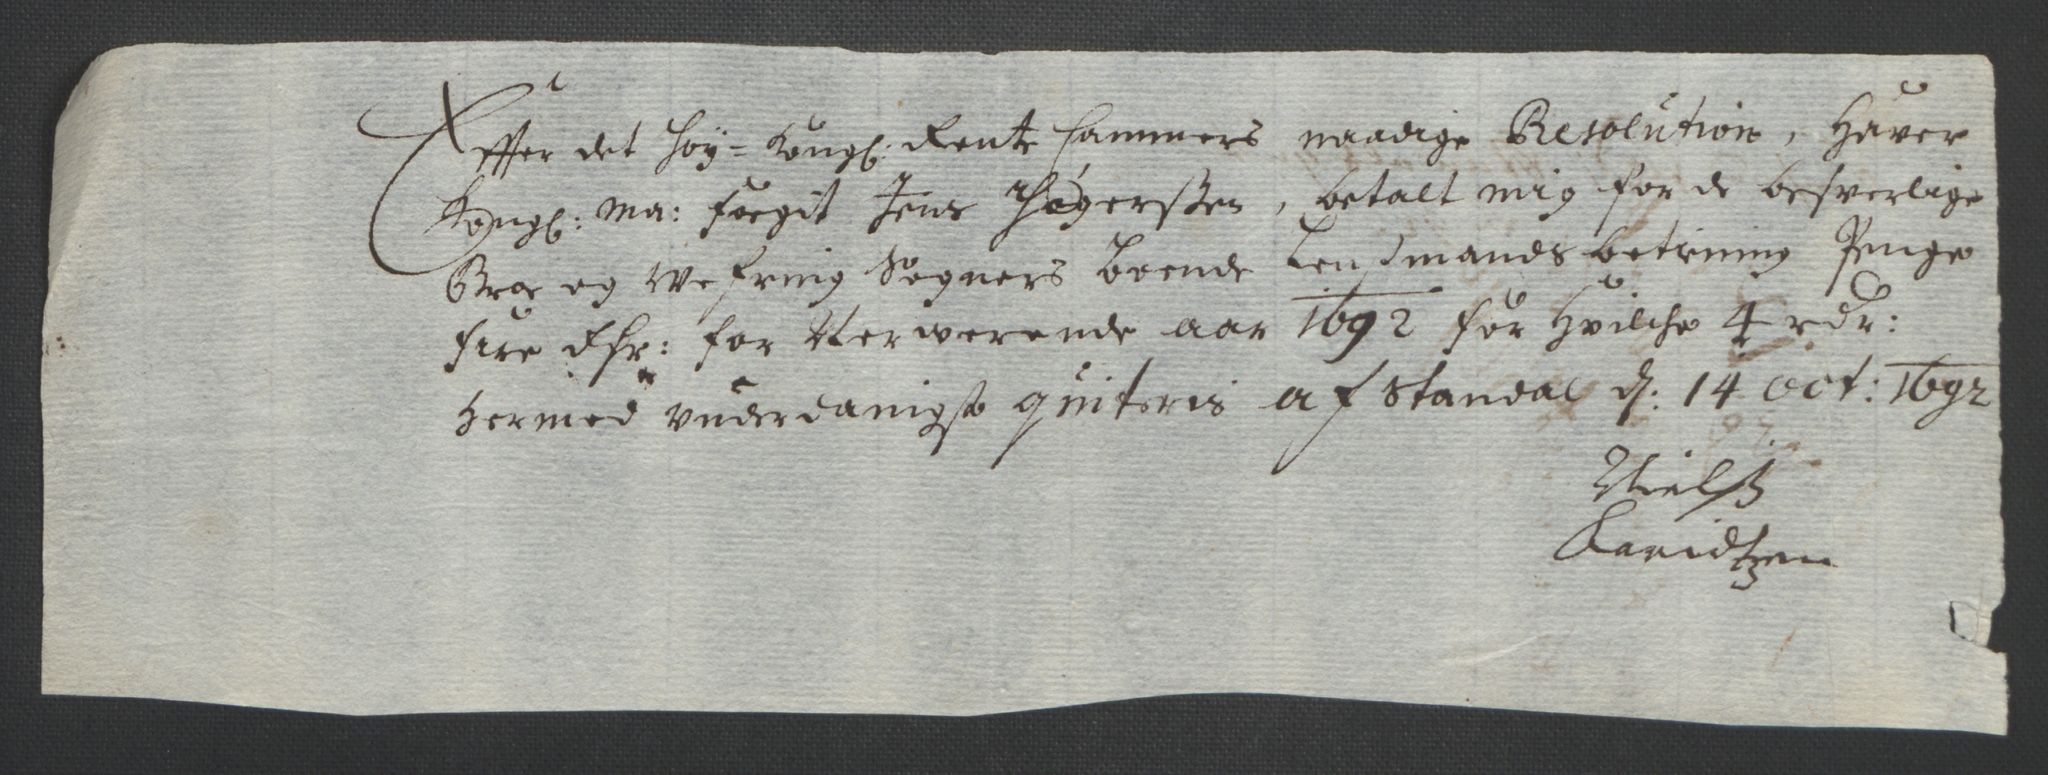 Effter det høy-Kongl: Rente Cammers naadige Resolution, haver
Kongl: Ma: foegit Jens betalt mig for de besverlige
og Sogners boende Lensmands betining Penge
fire Rdr: for Nerwerende aar 1692 for hvilche 4 rdr:
hermed underdanigst quiteris af Standal d: 14 oct: 1692
Nielß
Davidtzen